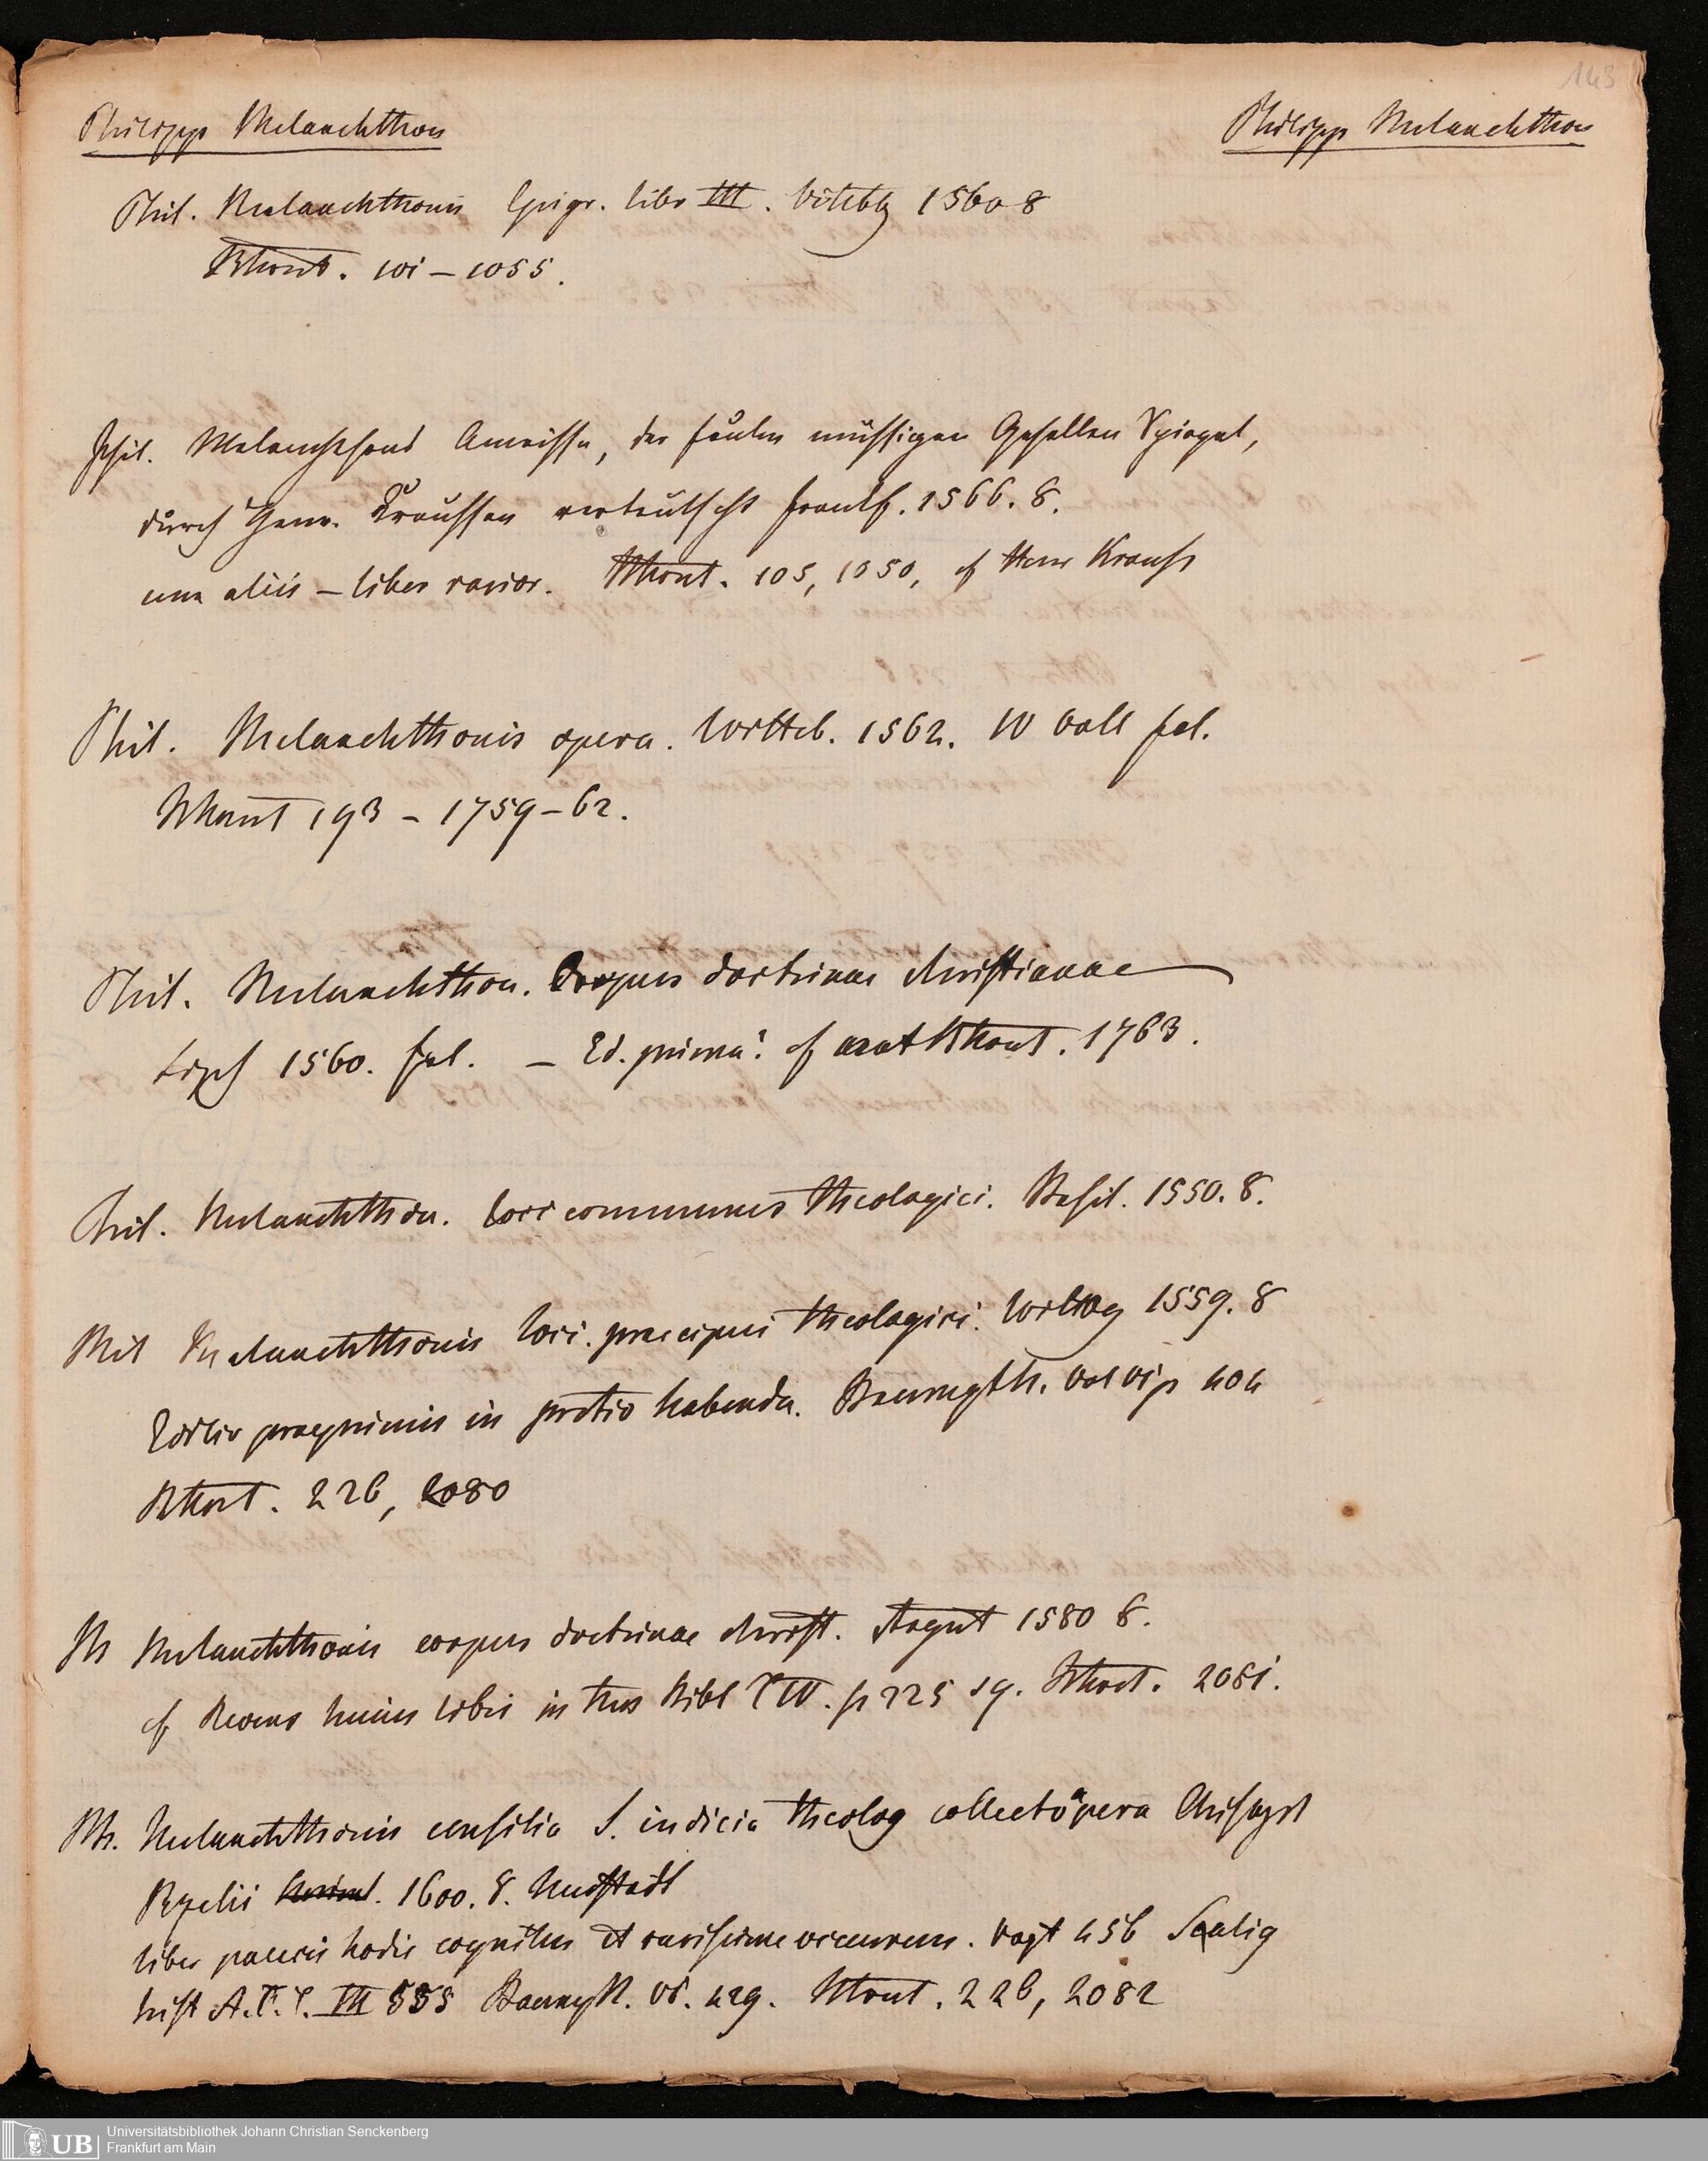 143
Philipp Melanchthon
Philipp Melanchthon
Phil. Melanchthonis Epigr. libr III. Vitebg 1560 8
101 – 1055.
Phil. Melanchthons Ameisse, der faulen müssigen Gesellen Spiegel,
durch Henr. Kraussen verteutscht Frankf. 1566. 8.
cum aliis – liber rarior. 105, 1050, cf Henr Krauss
Phil. Melanchthonis opera. Witteb. 1562. IV Voll fol.
193 – 1759–62.
Phil. Melanchthon. Corpus doctrinae christianae
Lips 1560. fol. – Ed. prima? cf 1763.
Phil. Melanchthon. loci communes theologici. Basil. 1550. 8.
Phil Melanchthonis loci praecipui theologici. 1559. 8
Editio in pretio habenda. Baumgth. Vol VI p 404
226, 2080
Ph Melanchthonis corpus doctrinae christ. Argent 1580 8.
cf huius libri in Bibl p 225 sq. 2081.
Ph. Melanchthonis consilia s. iudicia theolog collecta opera Christoph
Pezelii 1600. 8. Neustadt
liber paucis hodie cognitus et rarissime occurrens. Vogt 456 Salig
hist A. C. III 555 VI. 429. 226, 2082
Universitätsbibliothek Johann Christian Senckenberg
Frankfurt am Main
UB